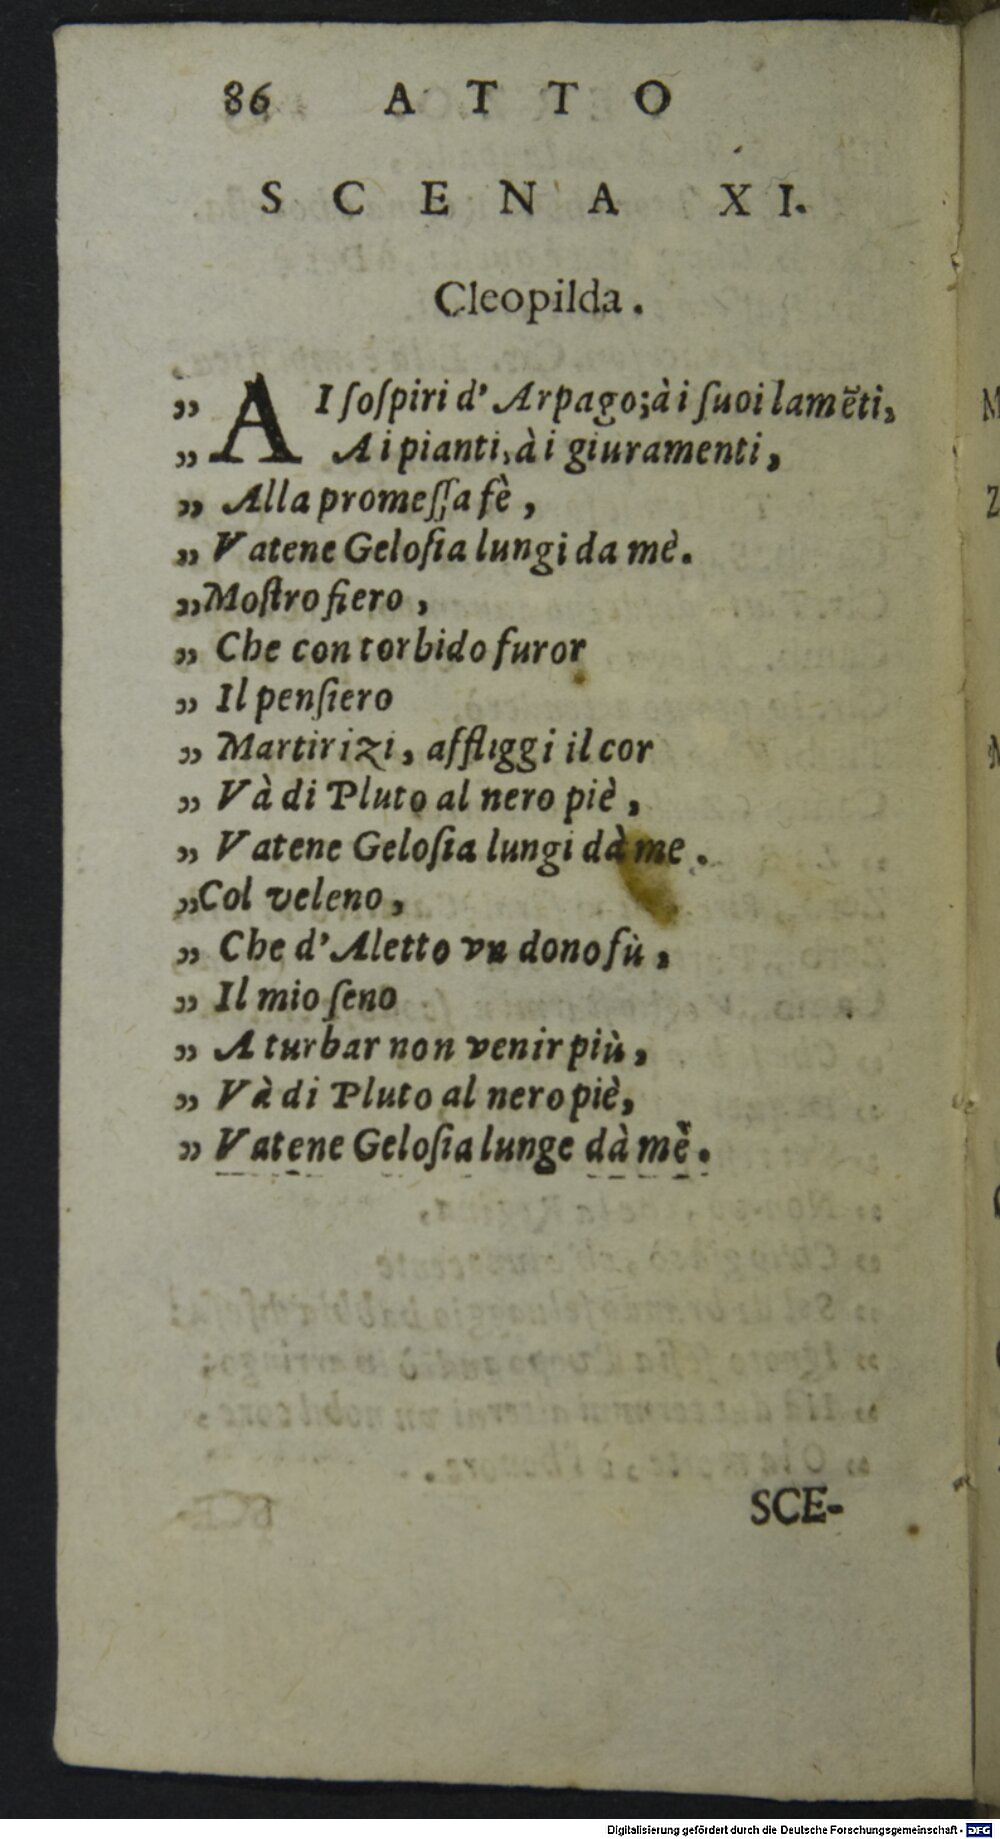 86 ATTO
SCENA XI.
Cleopilda.
„ AI ſoſpiri d' Arpago; à i ſuoi lamẽti,
„ A i pianti, à i giuramenti,
„ Alla promeſſa fè,
„ Vatene Geloſia lungi da mè.
„ Moſtro fiero,
„ Che con torbido furor
„ Il penſiero
„ Martirizi, affliggi il cor
„ Và di Pluto al nero piè,
„ Vatene Geloſia lungi dà me.
„ Col veleno,
„ Che d' Aletto vn dono fù,
„ Il mio ſeno
„ A turbar non venir più,
„ Và di Pluto al nero piè,
„ Vatene Geloſia lunge dà mè.
SCE-
Digitalisierung gefördert durch die Deutsche Forschungsgemeinschaft - DFG